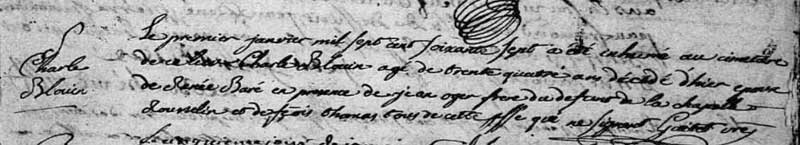 Charle
Blouin
Le premier janvier mil sept cent soixante sept a été inhumé au cimetiere
de ce lieu Charle Blouin agé de trente quatre ans décédé d'hier epoux
de Renée Baré en presence de jean oger frere du defunt de la chapelle
Rousselin et de fçois thomas tous de cette psse qui ne signent